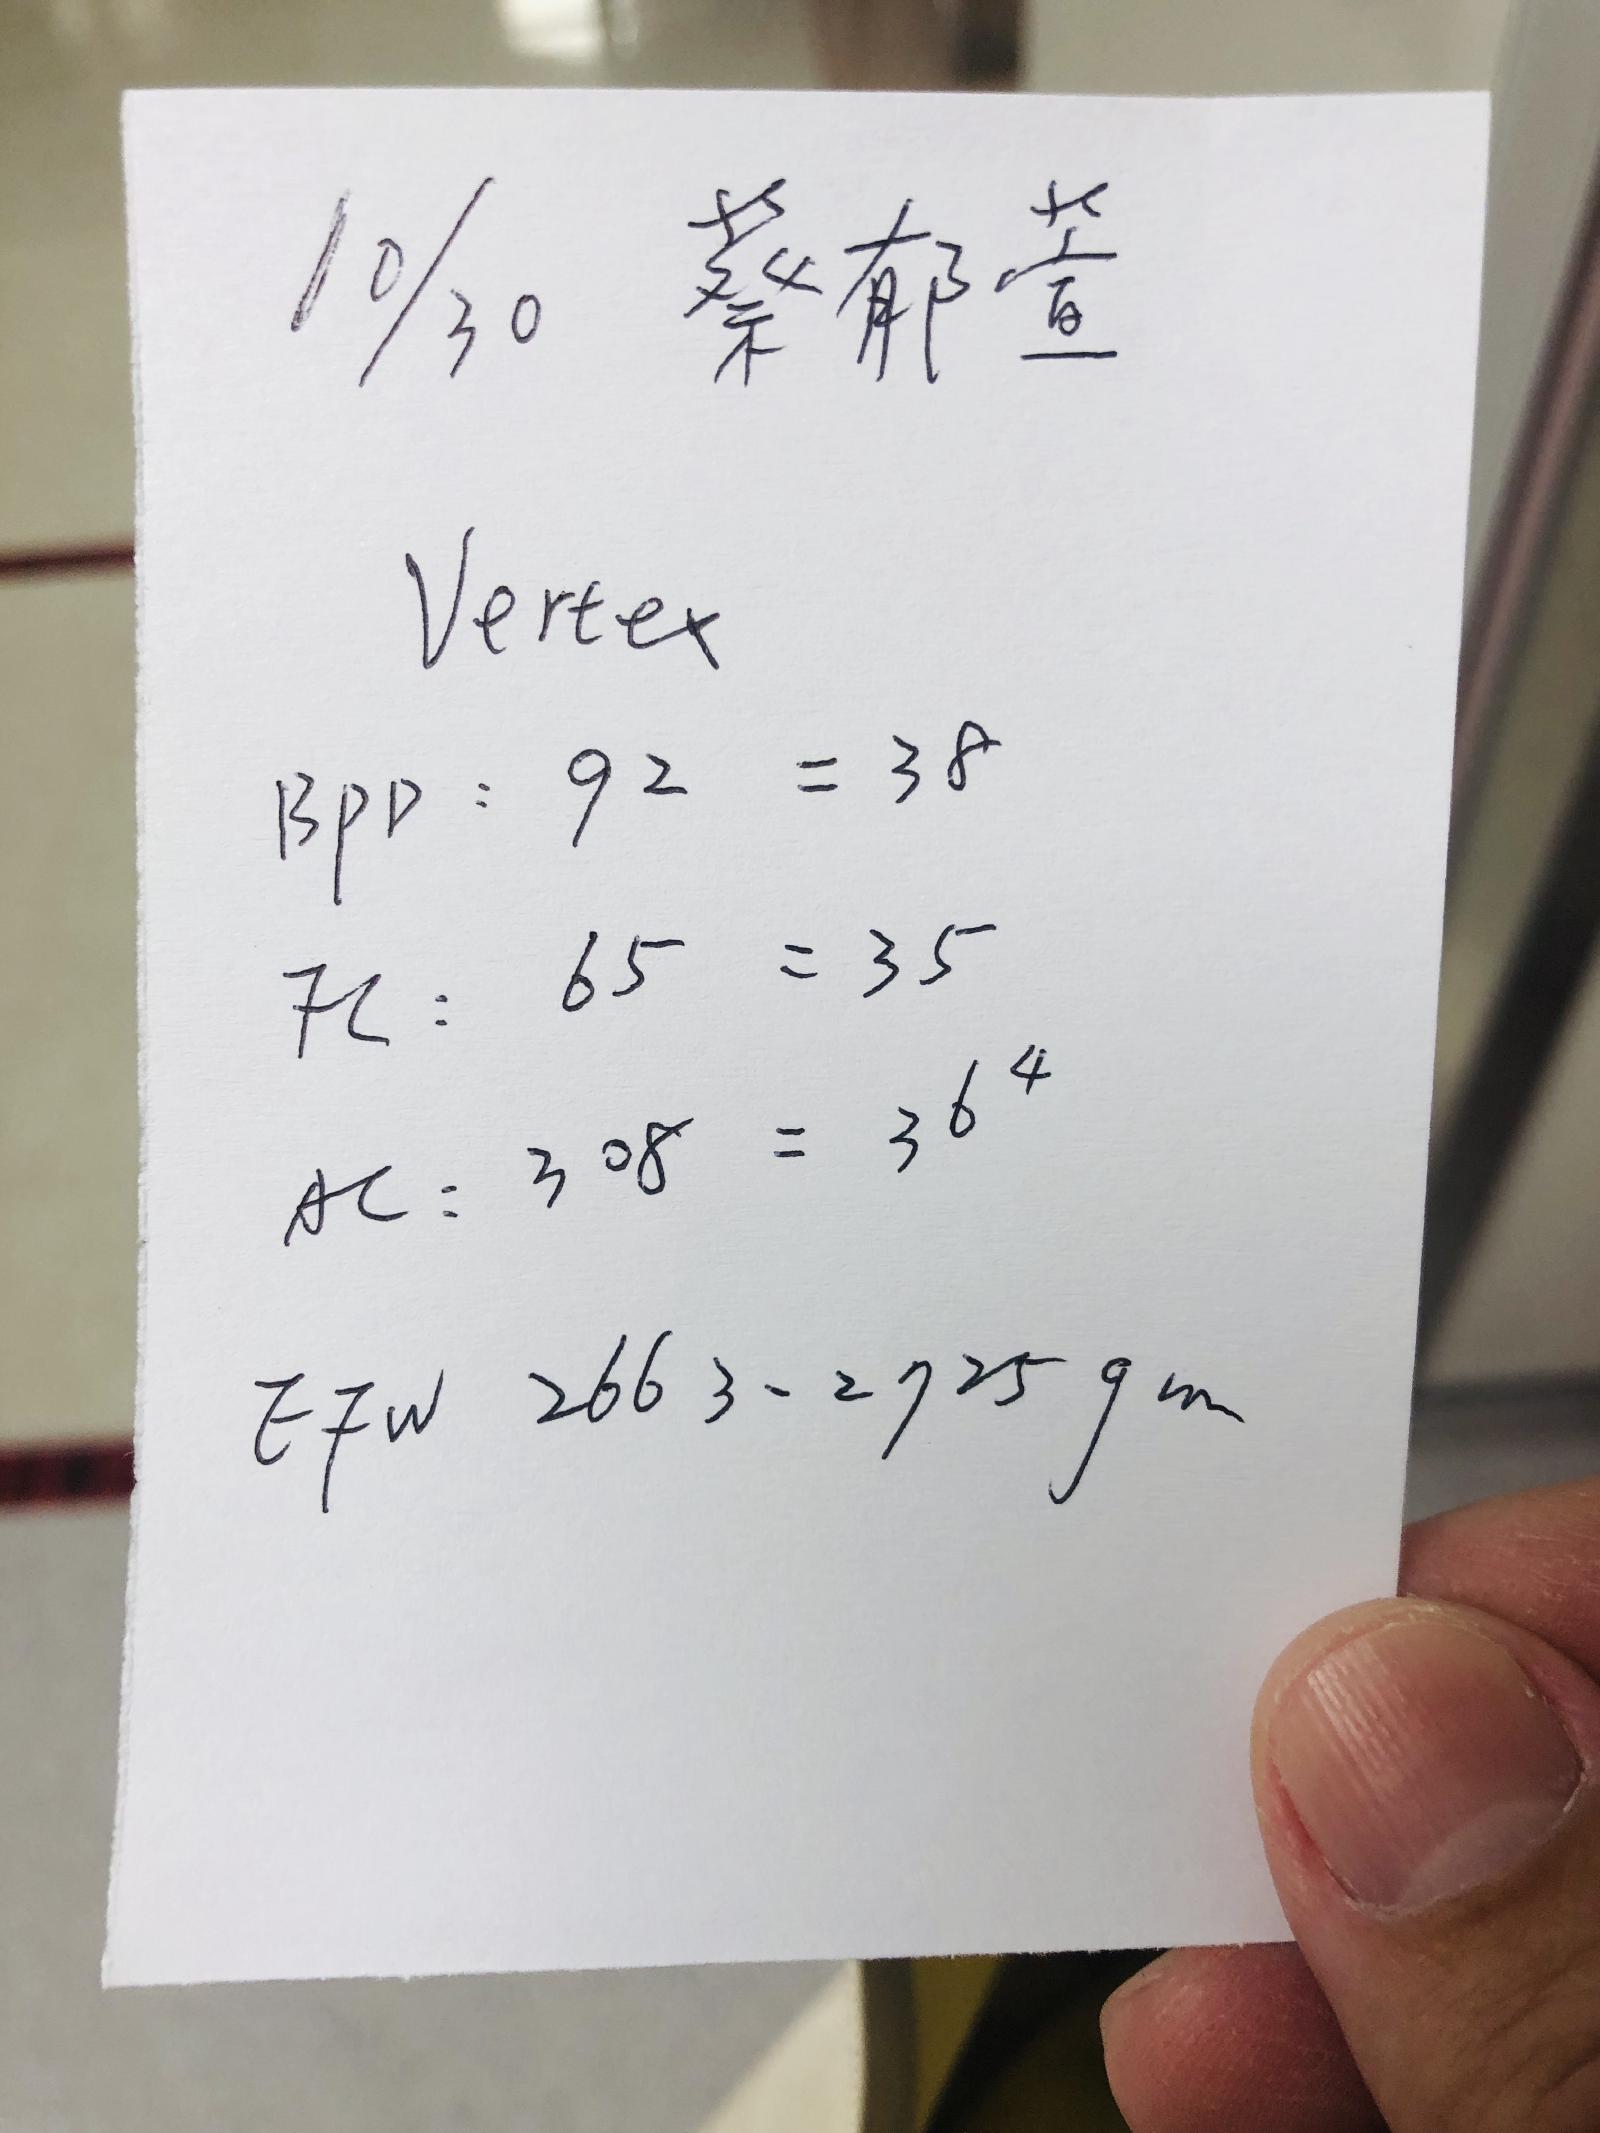 10/30 蔡郁萱
Vertex
BPD : 92 = 38
FL : 65 = 35
AC : 308 = 36⁴
EFW 2663-2725gm